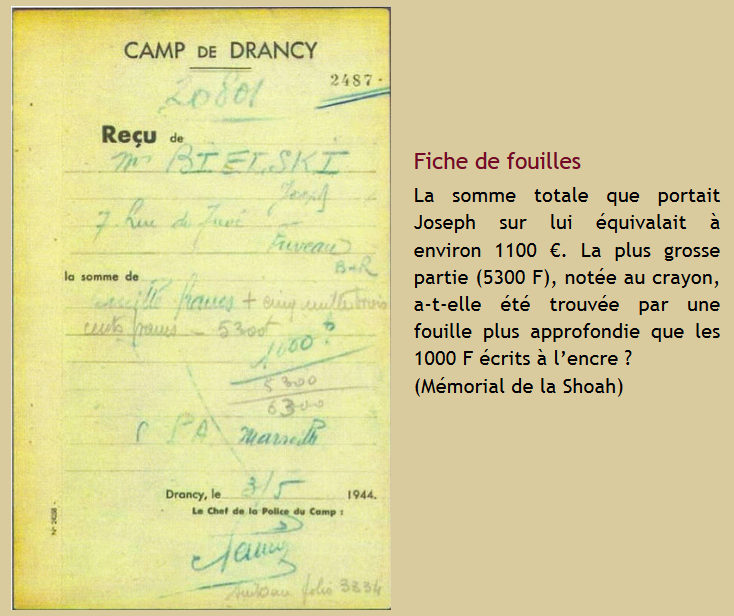 CAMP DE DRANCY
2487.
20801
Reçu de
Mr BIELSKI
Joseph
7 Rue de
Fuveau
la somme de
mille francs + cinq mille trois
cents francs – 5300
1000
5300
6300
PA Marseille
Drancy, le 3/5 1944.
Le Chef de la Police du Camp :
folio 3334
Fiche de fouilles
La somme totale que portait
Joseph sur lui équivalait à
environ 1100 €. La plus grosse
partie (5300 F), notée au crayon,
a-t-elle été trouvée par une
fouille plus approfondie que les
1000 F écrits à l’encre ?
(Mémorial de la Shoah)